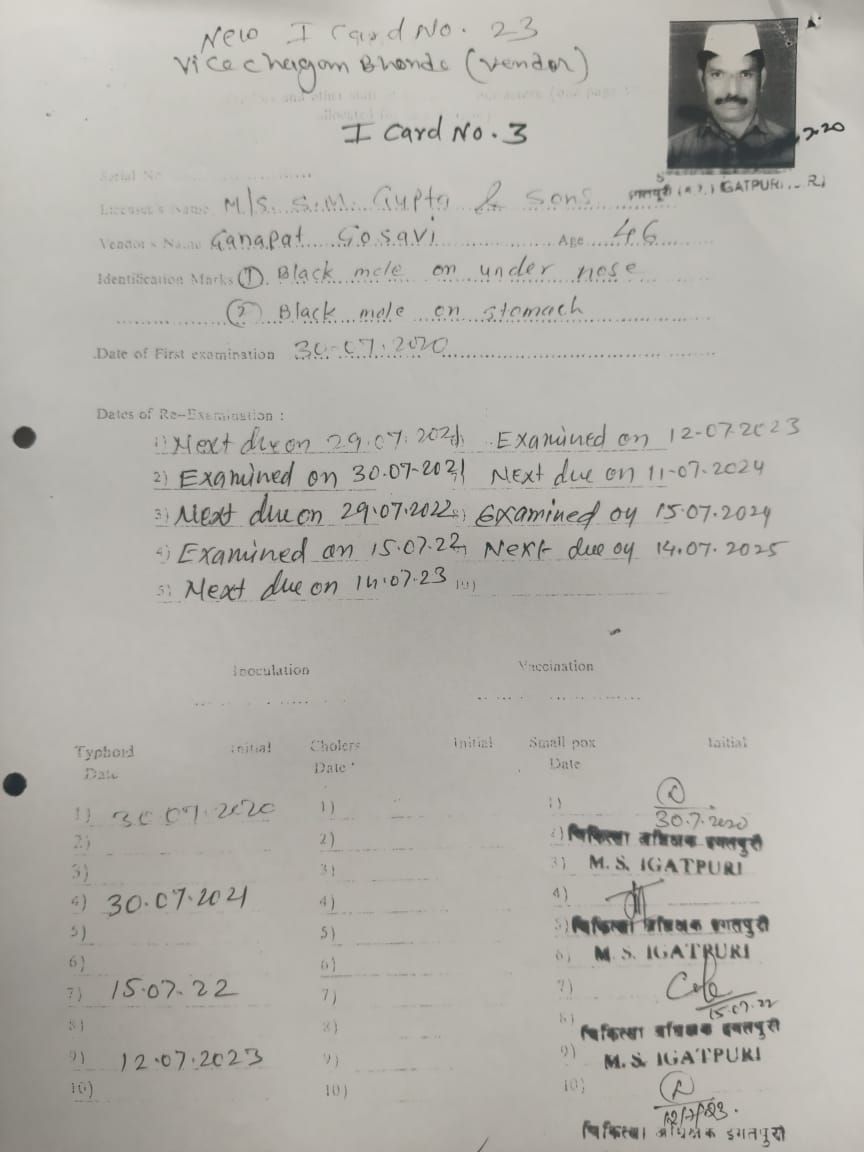 New I Card No. 23
Vice Chagan Bhonde (Vendor)
I Card No. 3
2-20
इगतपुरी (म.रे.) IGATPURI
Serial No
Licensee's Name M/s. S.M. Gupta & Sons
Vendor's Name Ganapat Gosavi Age 46
Identification Marks (1) Black mole on under nose
(2) Black mole on stomach
Date of First examination 30.07.2020
Dates of Re--Examination :
1) Next due on 29.07.2021 Examined on 12-07-2023
2) Examined on 30.07-2021 Next due on 11-07-2024
3) Next due on 29.07.2022 Examined oy 15.07.2024
4) Examined on 15.07.22 Next due oy 14.07.2025
5) Next due on 14.07.23 10)
Inoculation Vaccination
Typhord Initial Cholers Initial Small pox Initial
Date Date Date
1) 30.07.2020 1) 1) 30.7.2020
2) 2) 2) चिकित्सा अधिक्षक इगतपुरी
3) 3) 3) M. S. IGATPURI
4) 30.07.2021 4) 4)
5) 5) 5) चिकित्सा अधिक्षक इगतपुरी
6) 6) 6) M. S. IGATPURI
7) 15.07.22 7) 7) 15.07.22
8) 8) 8) चिकित्सा अधिक्षक इगतपुरी
9) 12.07.2023 9) 9) M. S. IGATPURI
10) 10) 10) 12/7/23.
चिकित्सा अधिक्षक इगतपुरी